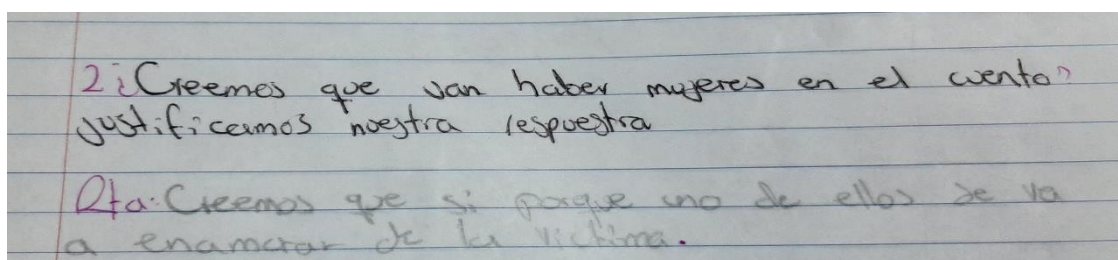 2¿Creemos que van haber mujeres en el cuento?
justificamos nuestra respuestra
Rta: Creemos que si porque uno de ellos se va
a enamorar de la victima.